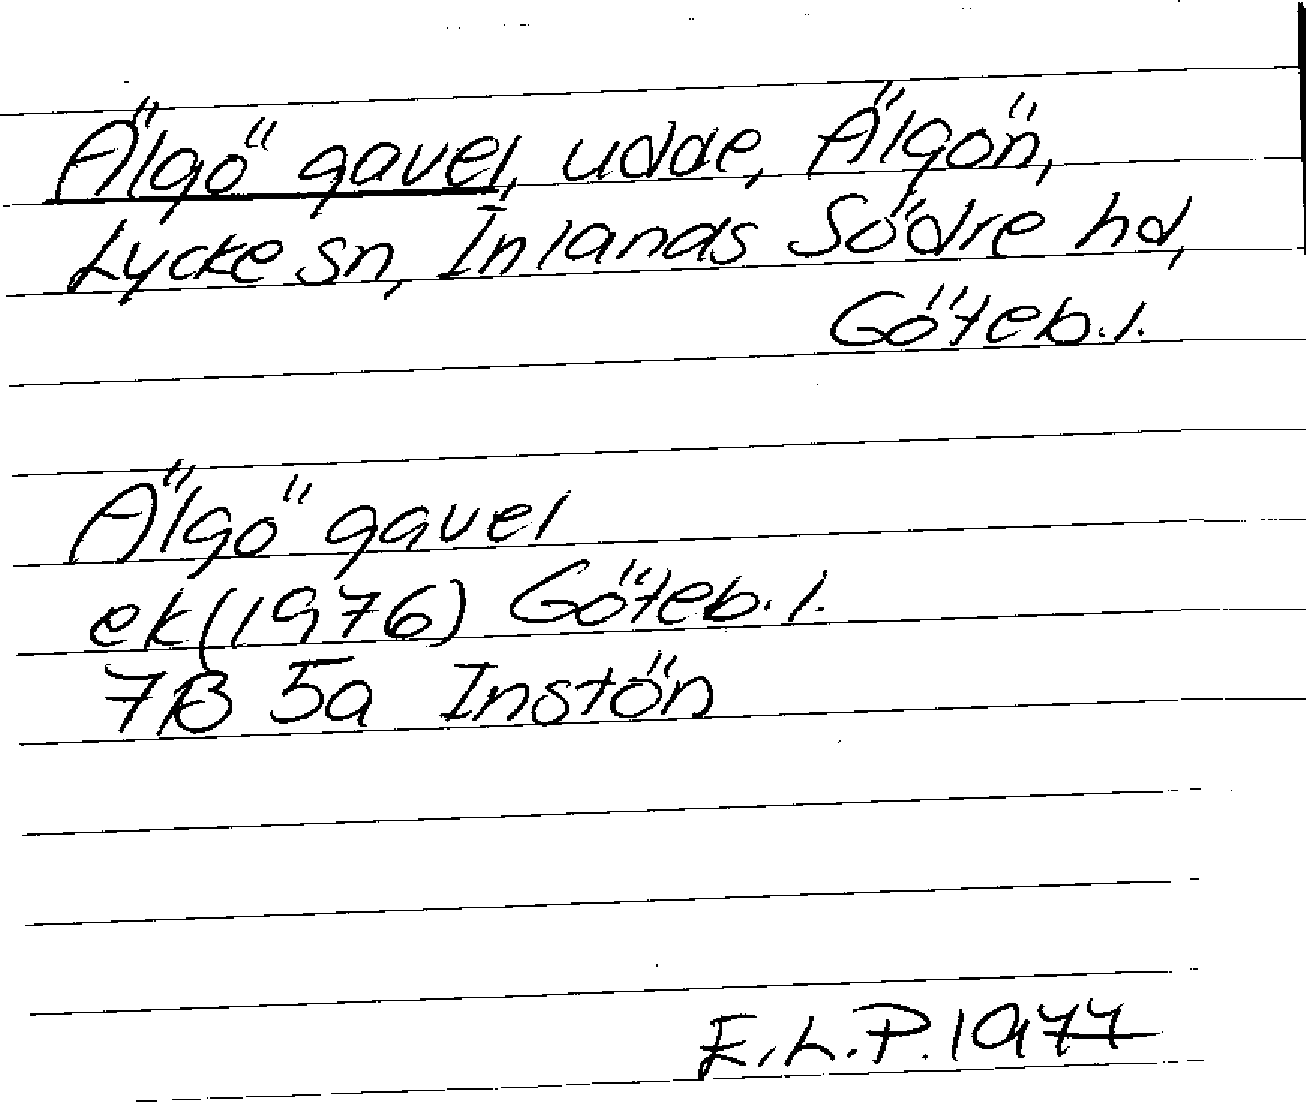 Älgö gavel, udde, Älgön,
Lycke sn, Inlands Södre hd,
Göteb.l.
Älgö gavel
ek(1976) Göteb.l.
7B 5a Instön
E.L.P. 1977